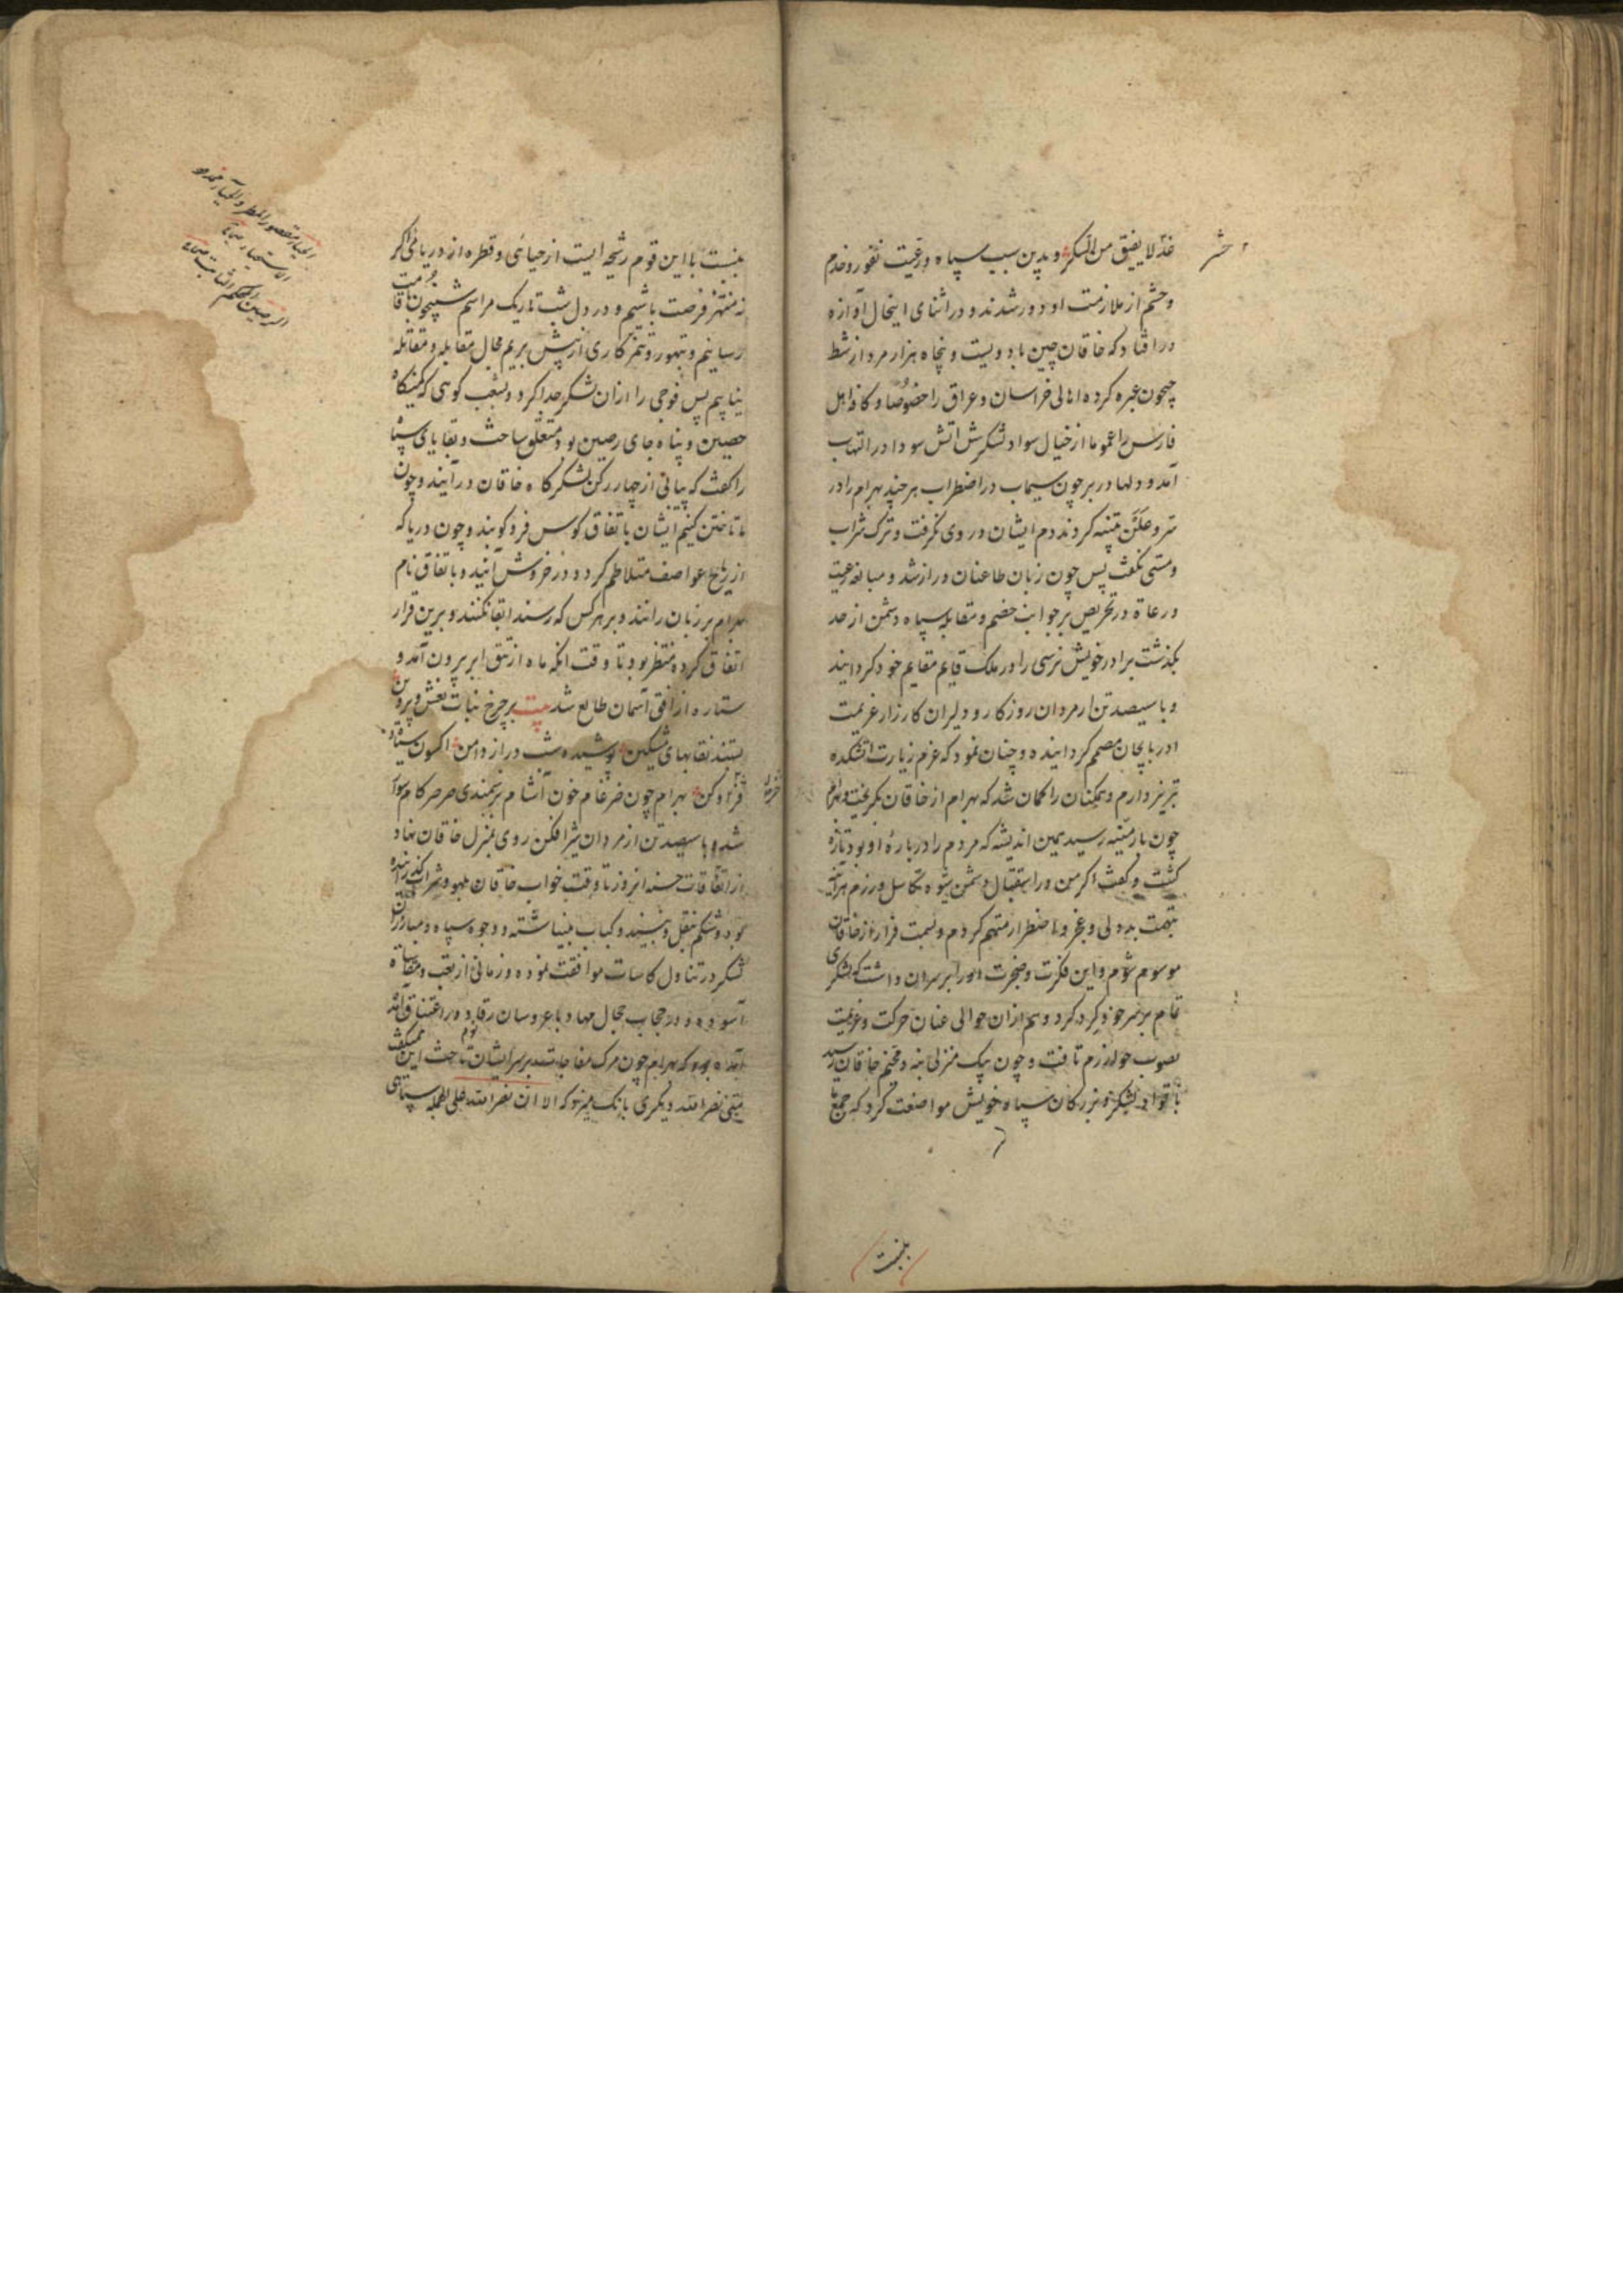 غد لا یفیق من السکر و بدین سبب سپاه و رعیت نفور و خدم
و حشم از ملازمت او دور شدند و در اثنای اینحال آوازه
در افتاد که خاقان چین با دویست و پنجاه هزار مرد از شط
جیحون عبره کرده اهالی خراسان و عراق را خصوصًا و کافه اهل
فارس را عموما از خیال سواد لشکرش آتش سودا در التهاب
آمد و دلها در بر چون سیماب در اضطراب هر چند بهرام را در
سر و علن تنبیه کردند دم ایشان در وی نگرفت و ترک شراب
و مستی نگفت پس چون زبان طاعنان دراز شد و مبالغه رعیت
و رعاة در تحریص بر جواب خصم و مقابله سپاه دشمن از حد
بگذشت برادر خویش نرسی را در ملک قایم مقایم خود کردانید
و با سیصد تن از مردان روزکار و دلیران کارزار عزیمت
ادربایجان مصمم کردانیده و چنان نمود که عزم زیارت اتشکده
تبریز دارم و همکنان را کمان شد که بهرام از خاقان بگریخت
چون بارمنیه رسید همین اندیشه که مردم را در بارهٔ او بود تازه
کشت و کفت اکر من در استقبال دشمن بشوه تکاسل ورزم هرآینه
بتهمت بددلی و عجز و اضطرار متهم کردم و بسمت فرار از خاقان
موسوم شوم و این فکرت و ضجرت او را بر سران داشت که لشکری
تمام بر سر خود کرد کرد و هم ازان حوالی عنان حرکت و عزیمت
بصوب خوارزم تافت و چون بیک منزلی بنه و مخیم خاقان رسید
با قواد لشکر و بزرکان سپاه خویش مواضعت کرد که جمع ما
بنسبت
بنسبت با این قوم رشحه ایست از حیاضی و قطره از دریائی اکر
نه منتهز فرصت باشیم و در دل شب تاریک مراسم شبیخون باقامت
رسانیم و بتهور و تنمر کاری از پیش بریم مجال مقابله و مقاتله
نیابیم پس فوجی را ازان لشکر جدا کرد و بشعب کوهی که کمینکاه
حصین و پناه جای رصین بود متعلق ساخت و بقایای سپاه
را کفت که بیاتی از چهار رکن لشکرکاه خاقان درآیند و چون
ما تاختن کنیم ایشان باتفاق کوس فروکوبند و چون دریا که
از ریاح عواصف متلاطم کردد در خروش آیند و باتفاق نام
بهرام بر زبان رانند و بر هر کس که رسند ابقا نکنند و برین قرار
اتفاق کرده منتظر بود تا وقت انکه ماه از تتق ابر بیرون آمد و
ستاره از افق آسمان طالع شد بیت بر چرخ بنات نعش و پروین
بستند نقابهای مشکین پوشیده شب دراز دامن اکسون سیاه
بهرام چون ضرغام خون آشام بر سمندی صرصر کام سوار
شد و با سیصد تن از مردان شیرافکن روی بمنزل خاقان نهاد
از اتفاقات حسنه انروز تا وقت خواب خاقان بلهو و شراب کذرانیده
بود و شکم بنقل و نبیذ و کباب بینباشته و وجوه سپاه و مبارزان
لشکر در تناول کاسات موافقت نموده و زمانی از تعب و مقاسات
آسوده و در حجاب حجال مهاد با عروسان رقاد در اعتناق
آمده بود که بهرام چون مرک مفاجات بر سر ایشان تاخت این همیکفت
متی نصر الله دیکری بانک میزد که الا ان نصر الله علی الجمله سپاهی